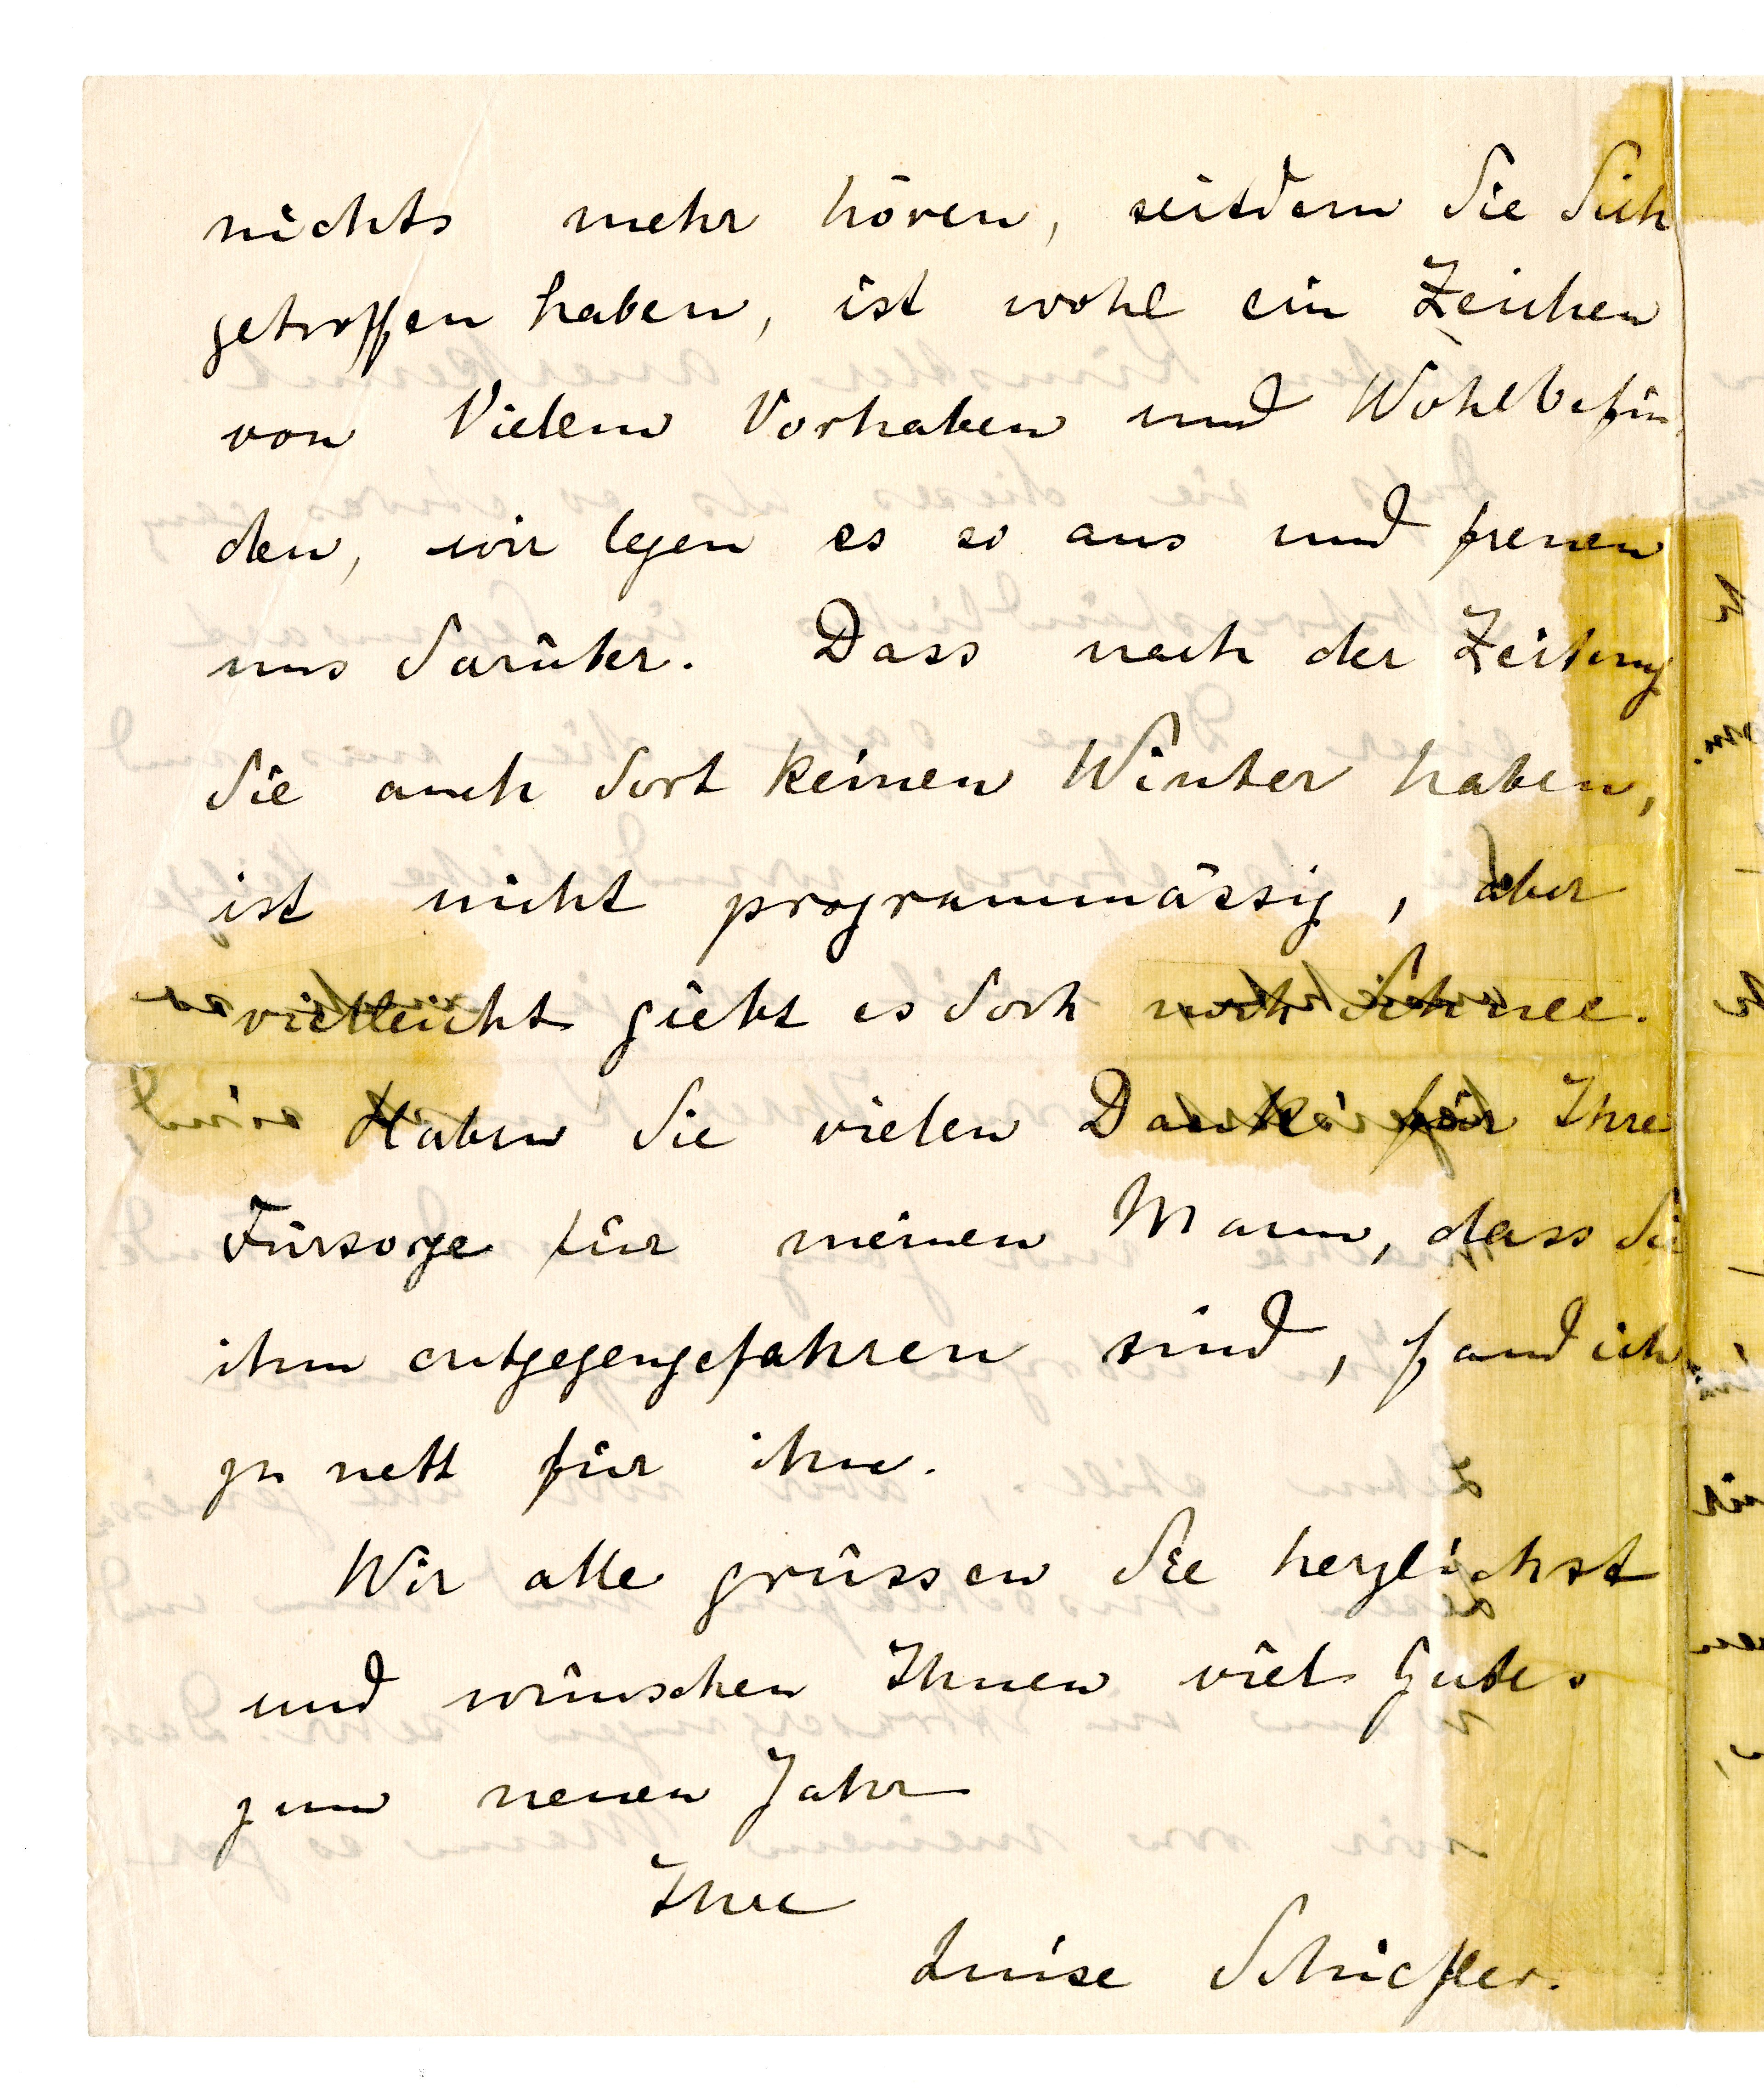 nichts mehr hören, seitdem Sie Sich
getroffen haben, ist wohl ein Zeichen
von Vielem Vorhaben und Wohlbefin
den, wir legen es so aus und freuen
uns darüber. Dass nach der Zeitung
Sie auch dort keinen Winter haben,
ist nicht programmässig, aber
vielleicht giebt es doch noch Schnee.
Haben Sie vielen Dank für Ihre
Fürsorge für meinen Mann, dass Sie
ihm entgegengefahren sind, fand ich
zu nett für ihn.
Wir alle grüssen Sie herzlichst
und wünschen Ihnen viel Gutes
zum neuen Jahr
Ihre
Luise Schiefler.